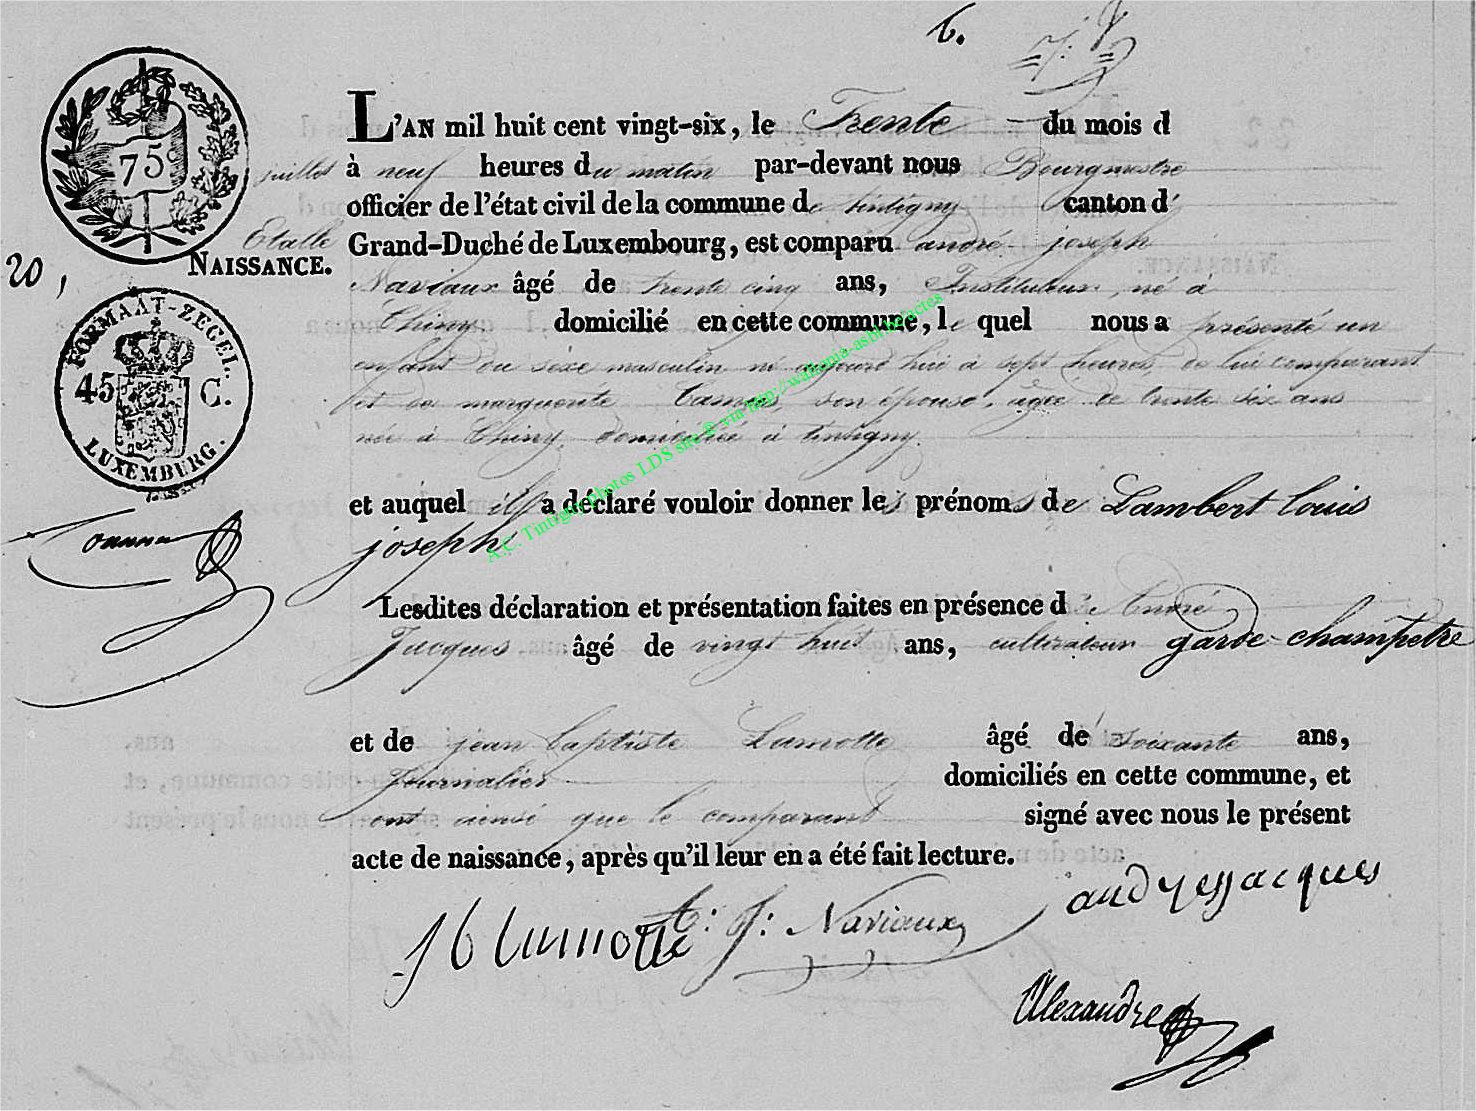 6.
75c
L'AN mil huit cent vingt-six, le Trente du mois d
juillet à neuf heures du matin par-devant nous Bourgmestre
officier de l'état civil de la commune de tintigny canton d'
Etalle Grand-Duché de Luxembourg, est comparu andré joseph
20, NAISSANCE.
Naviaux âgé de trente cinq ans, Instituteur, né à
Chiny domicilié en cette commune, le quel nous a présenté un
enfant du sèxe masculin né aujourd'hui à sept heures, de lui comparant
et de marguerite son épouse, agée de trente six ans
née à Chiny domiciliée à tintigny.
FORMAAT-ZEGEL.
45 C.
LUXEMBURG.
et auquel il a déclaré vouloir donner les prénoms de Lambert Louis
joseph
Lesdites déclaration et présentation faites en présence de André
Jacques âgé de vingt huit ans, cultivateur garde-champetre
et de jean baptiste Lamotte âgé de soixante ans,
Journalier domiciliés en cette commune, et
ont ainsi que le comparant signé avec nous le présent
acte de naissance, après qu'il leur en a été fait lecture.
andre jacques
J b lamotte A: J: Naviaux
Alexandre
A.C. Tintigny photos LDS site © via http://wallonia-asbl.be/actes